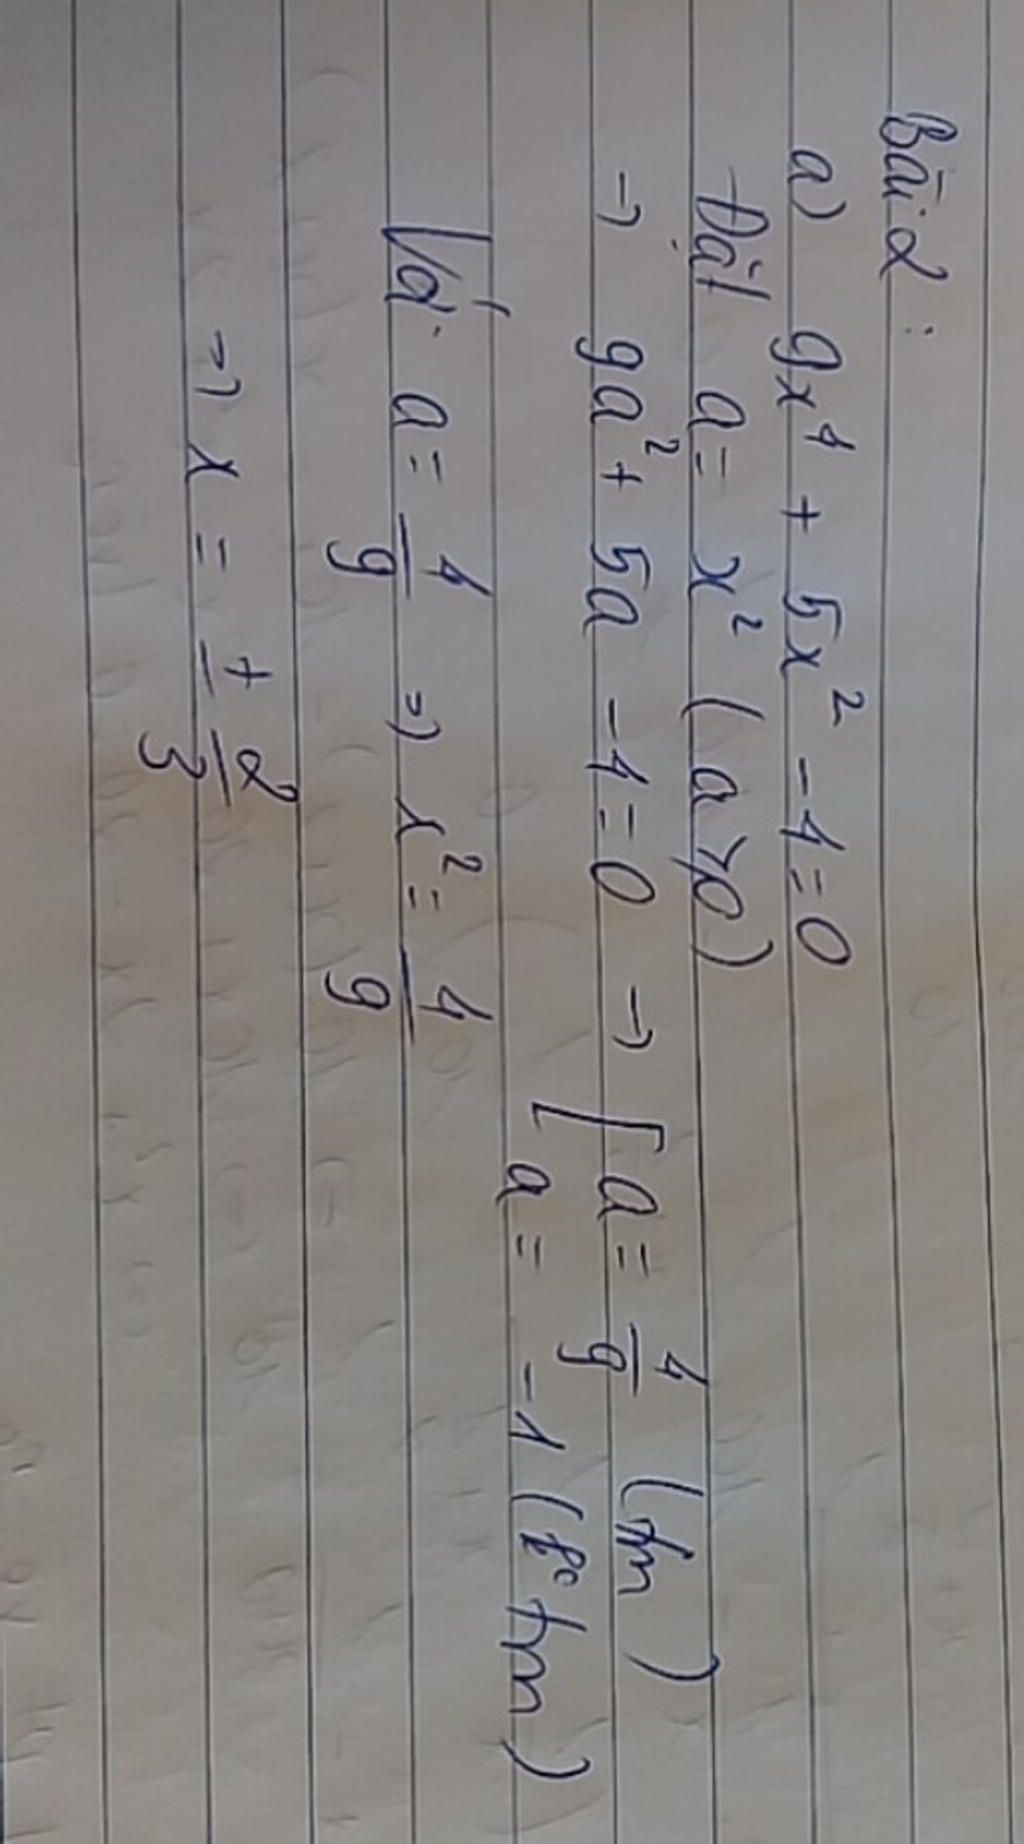 Bài 2 :
a) 9x⁴ + 5x² - 4 = 0
Đặt a = x² ( a ≥ 0 )
→ 9a² + 5a - 4 = 0 → [ a = 4/9 (tm)
a = -1 (k° tm)
Với a = 4/9 => x² = 4/9
=> x = ± 2/3